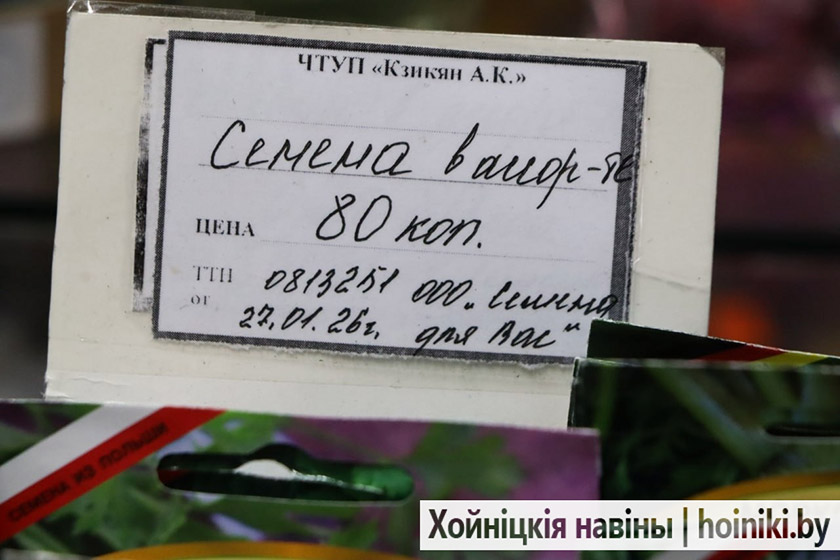 ЧТУП «Кзикян А.К.»
Семена в ассор-те
ЦЕНА 80 коп.
ТТН 0813251 ООО „Семена
от 27.01.26г. для Вас"
СЕМЕНА ИЗ ПОЛЬШИ
Хойніцкія навіны | hoiniki.by